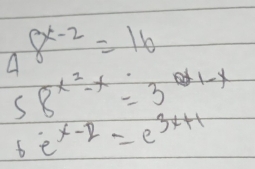 4 8^{x-2} = 16
5 8^{x^2-x} = 3^{1-x}
6 e^{x-2} = e^{3x+1}